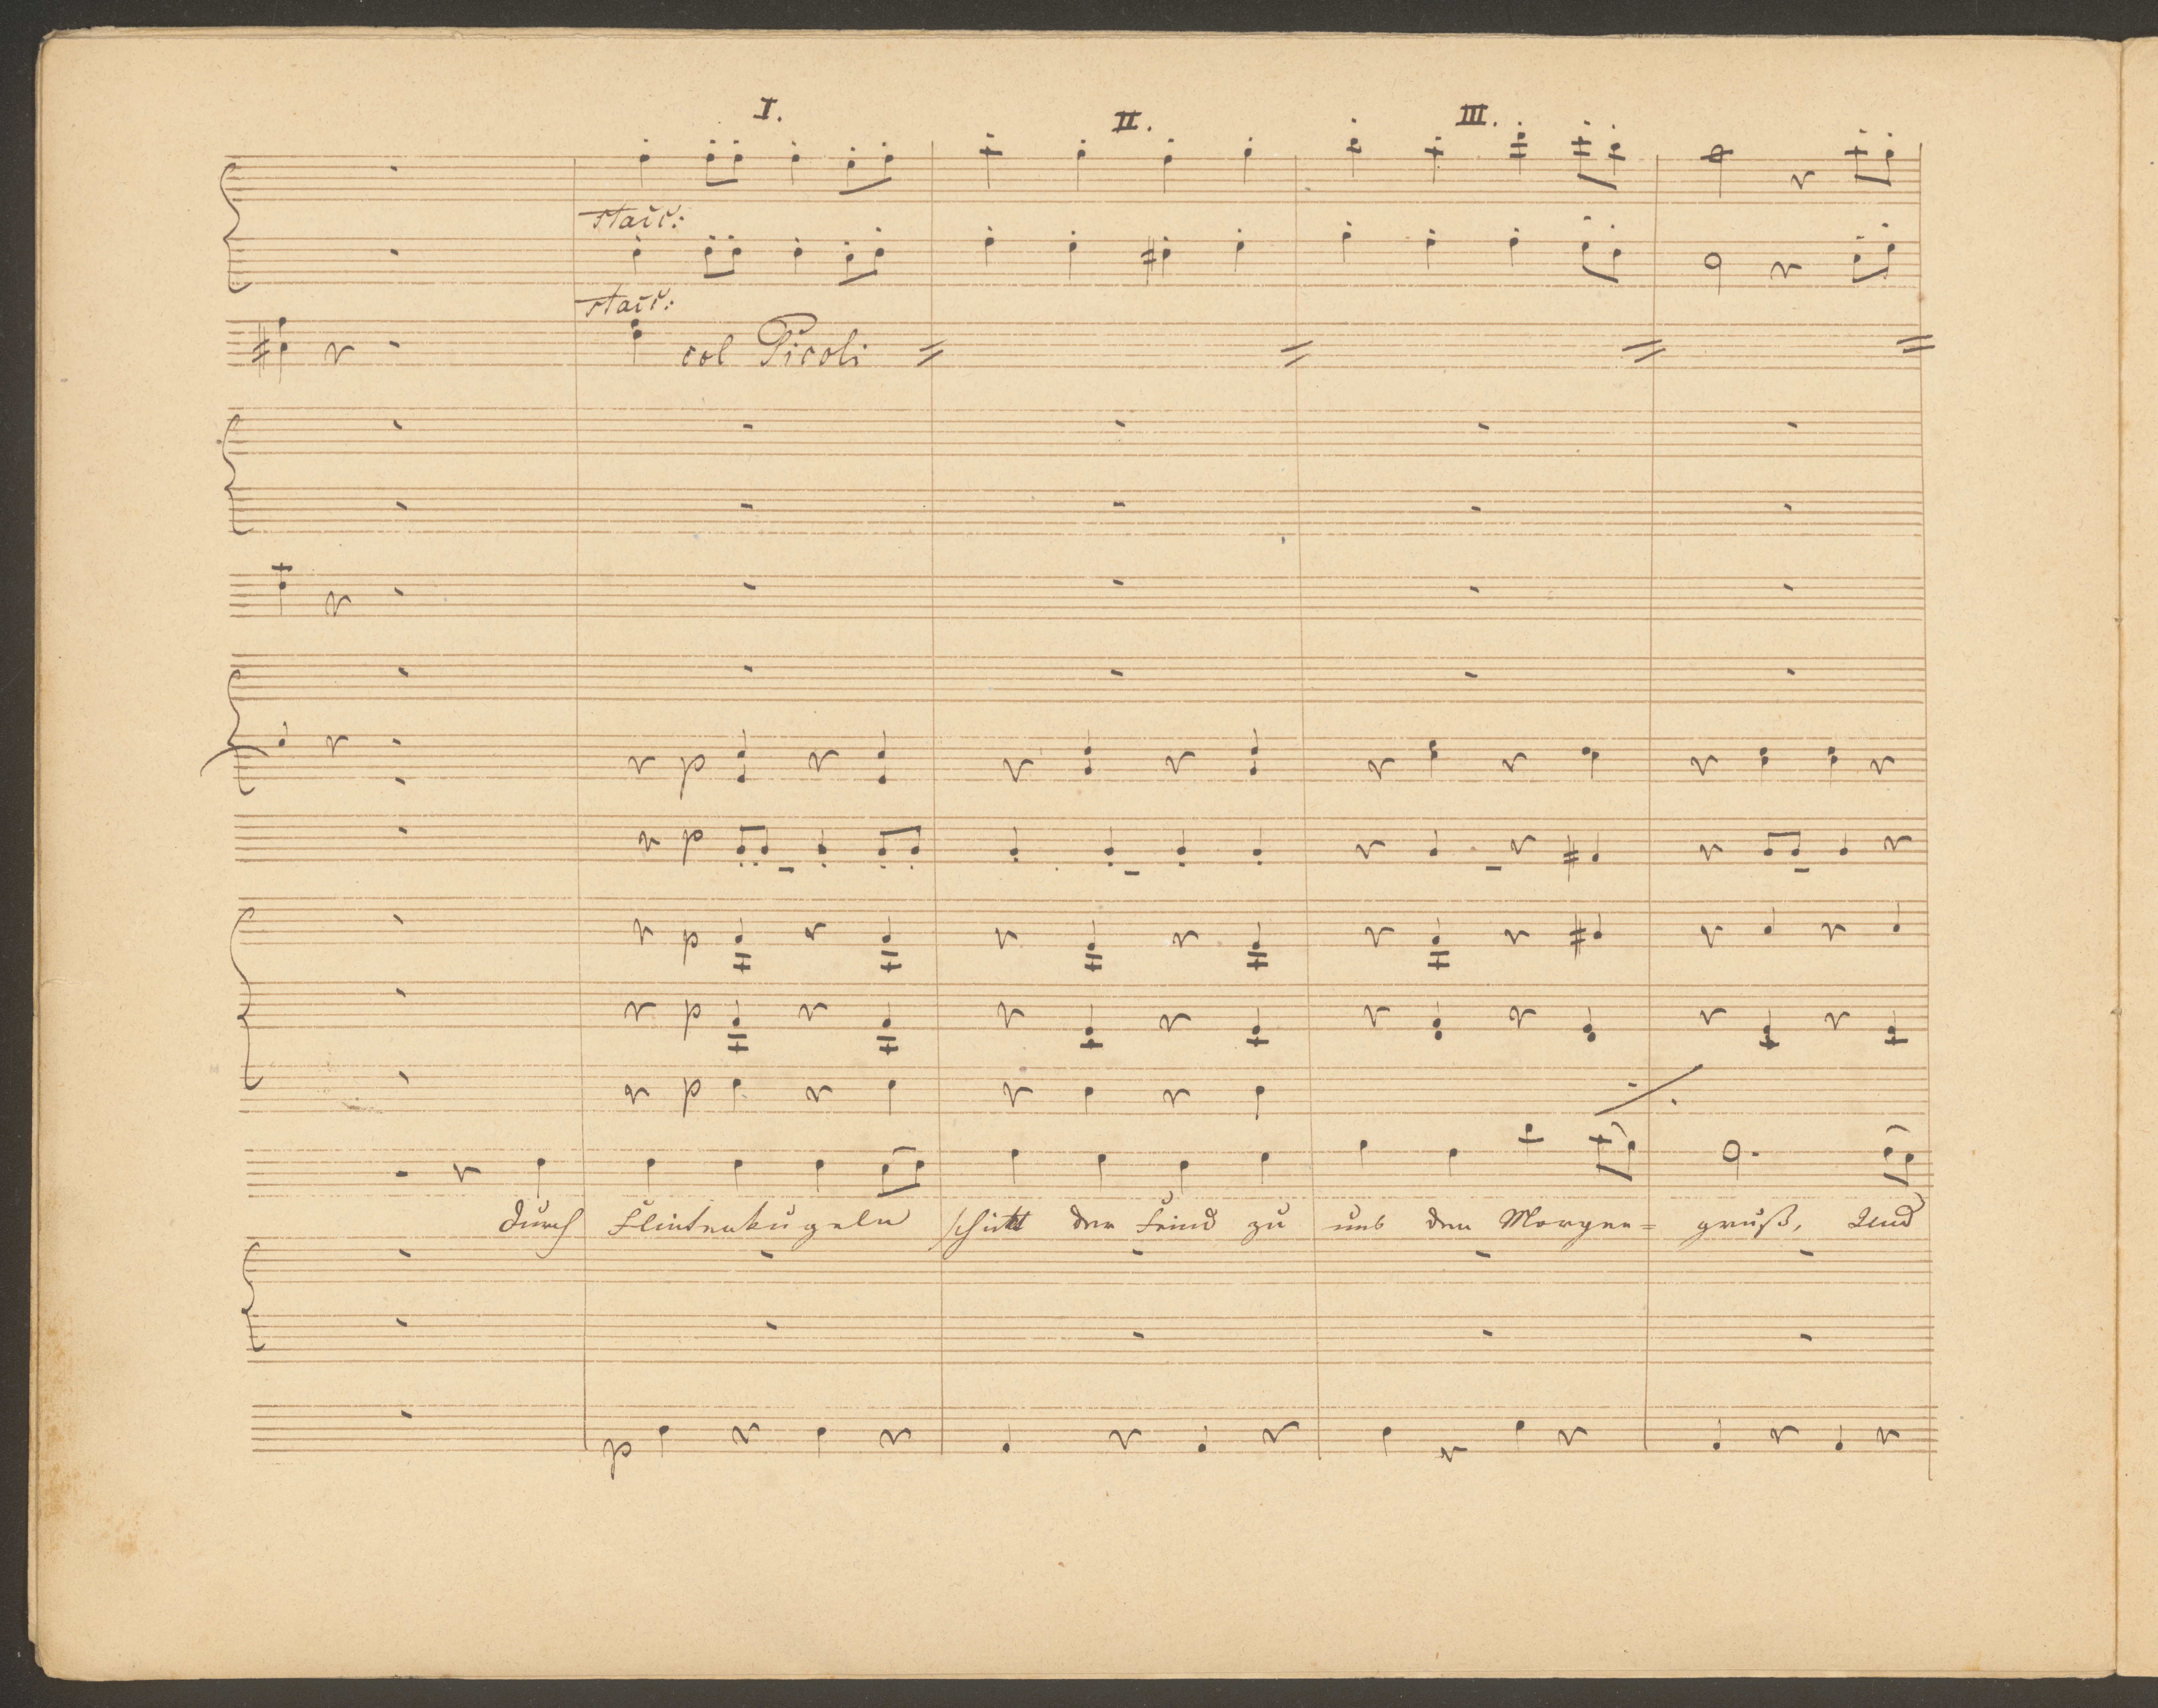 I. II. III.
stacc:
stacc:
col Picoli
p
p
p
p
p
durch Flintenkugeln schickt der Feind zu uns den Morgen= gruß, Und
p